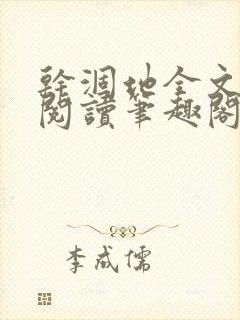 幹涸地全文
閱讀筆趣閣
李成儒